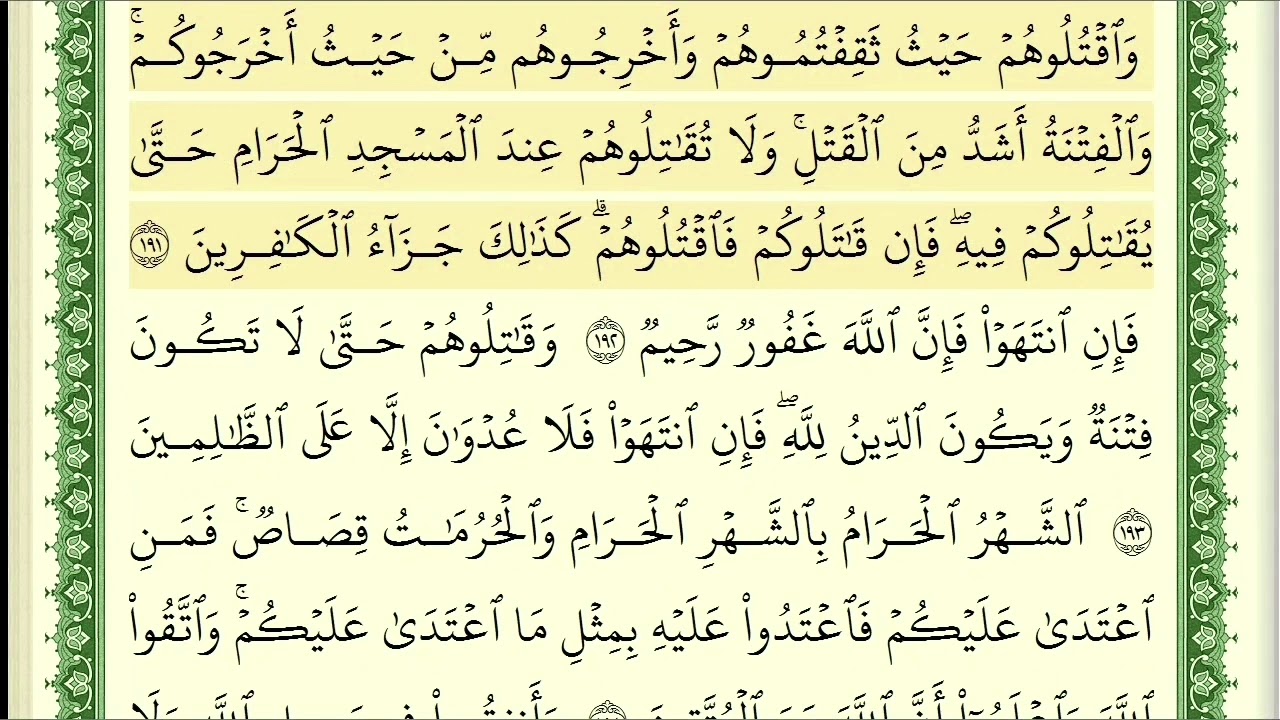 وَٱقۡتُلُوهُمۡ حَيۡثُ ثَقِفۡتُمُوهُمۡ وَأَخۡرِجُوهُم مِّنۡ حَيۡثُ أَخۡرَجُوكُمۡۚ
وَٱلۡفِتۡنَةُ أَشَدُّ مِنَ ٱلۡقَتۡلِۚ وَلَا تُقَٰتِلُوهُمۡ عِندَ ٱلۡمَسۡجِدِ ٱلۡحَرَامِ حَتَّىٰ
يُقَٰتِلُوكُمۡ فِيهِۖ فَإِن قَٰتَلُوكُمۡ فَٱقۡتُلُوهُمۡۗ كَذَٰلِكَ جَزَآءُ ٱلۡكَٰفِرِينَ ١٩١
فَإِنِ ٱنتَهَوۡاْ فَإِنَّ ٱللَّهَ غَفُورٞ رَّحِيمٞ ١٩٢ وَقَٰتِلُوهُمۡ حَتَّىٰ لَا تَكُونَ
فِتۡنَةٞ وَيَكُونَ ٱلدِّينُ لِلَّهِۖ فَإِنِ ٱنتَهَوۡاْ فَلَا عُدۡوَٰنَ إِلَّا عَلَى ٱلظَّٰلِمِينَ
١٩٣ ٱلشَّهۡرُ ٱلۡحَرَامُ بِٱلشَّهۡرِ ٱلۡحَرَامِ وَٱلۡحُرُمَٰتُ قِصَاصٞۚ فَمَنِ
ٱعۡتَدَىٰ عَلَيۡكُمۡ فَٱعۡتَدُواْ عَلَيۡهِ بِمِثۡلِ مَا ٱعۡتَدَىٰ عَلَيۡكُمۡۚ وَٱتَّقُواْ